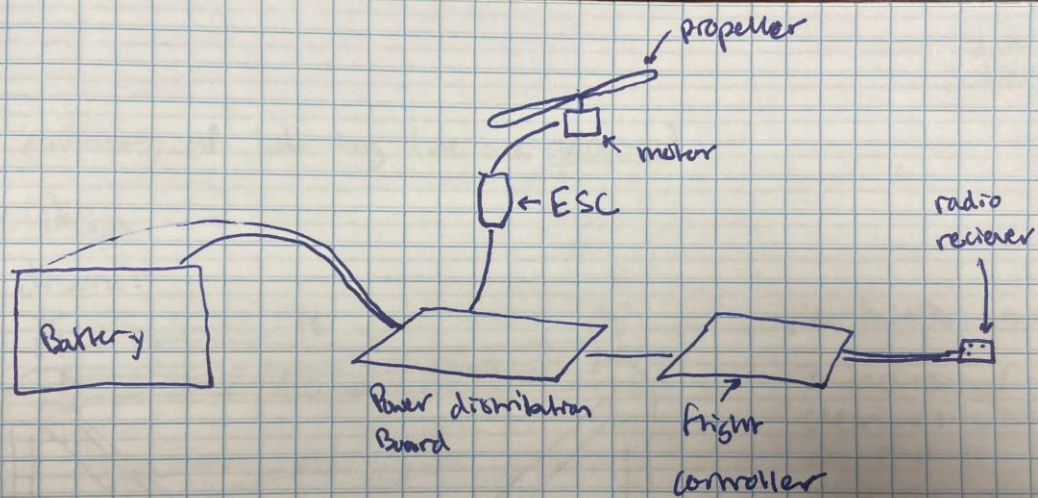 propeller
motor
ESC
radio
reciever
Battery
Power distribution
Board
flight
controller